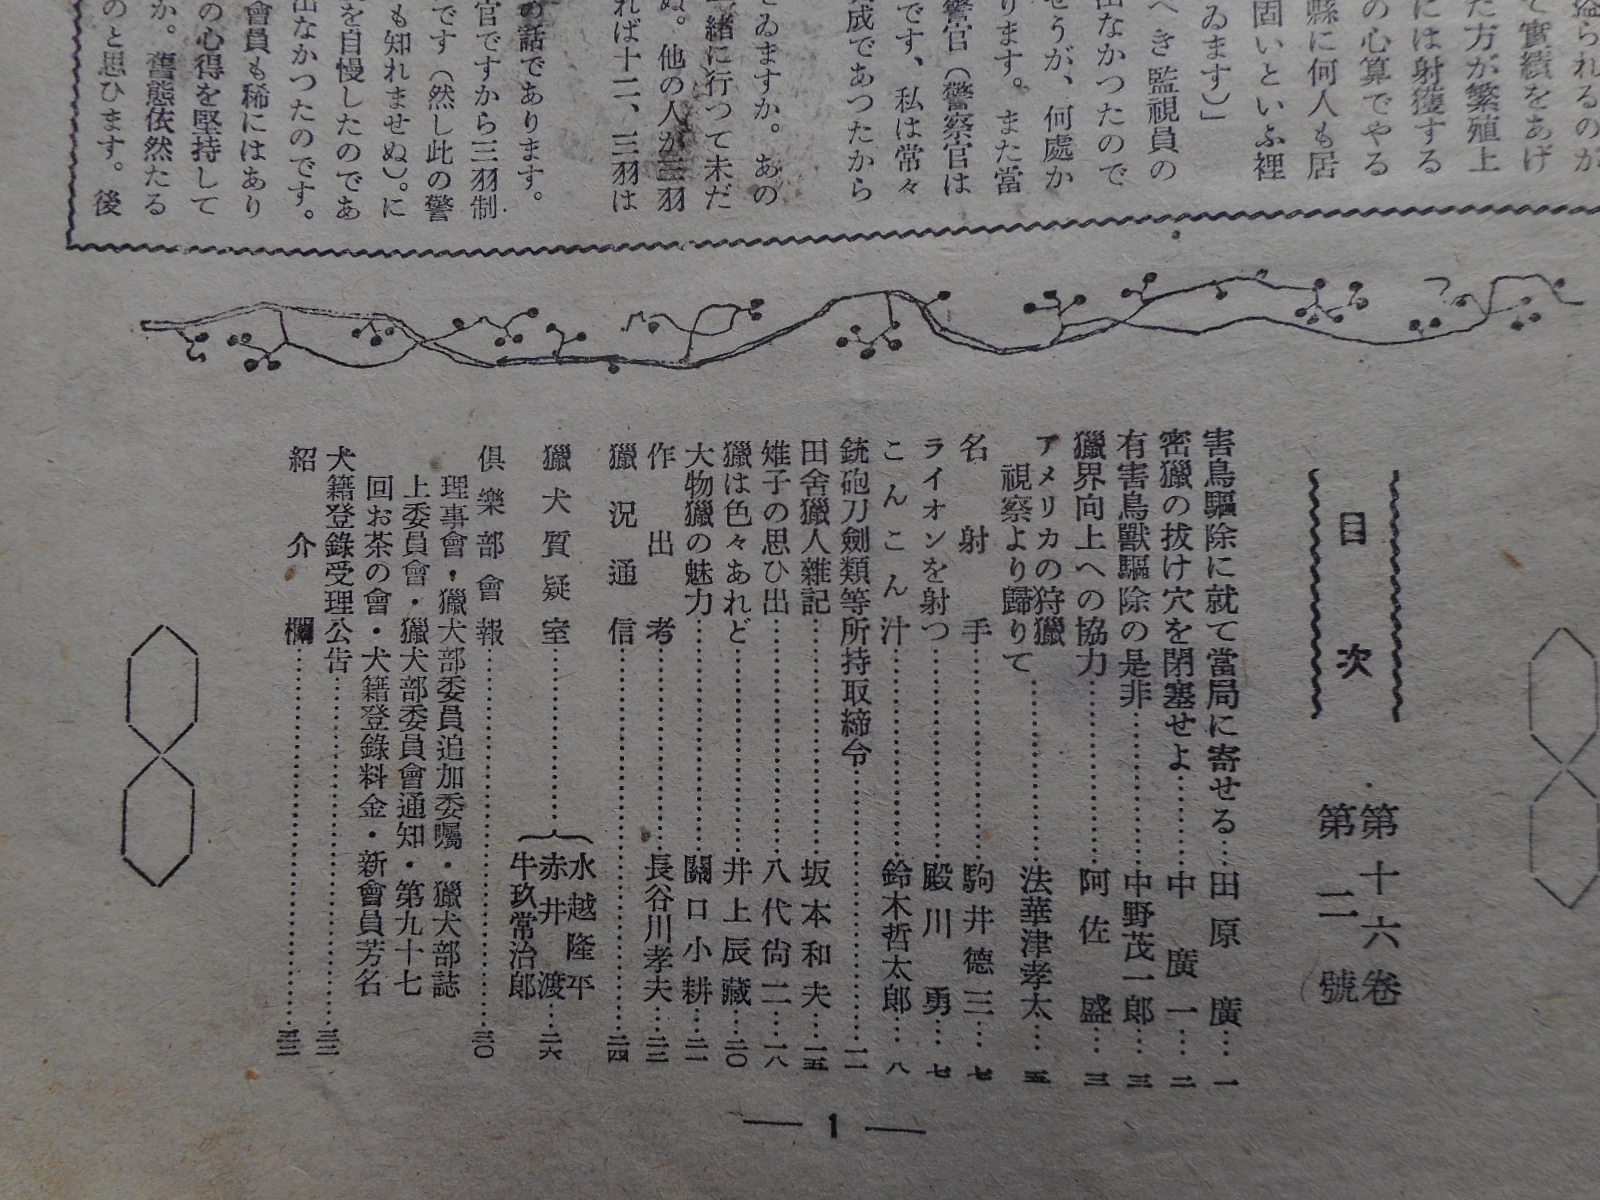 溢られるのが
て實績をあげ
た方が繁殖上
には射獲する
の心算でやる
縣に何人も居
固いといふ裡
ゐます)」
へき監視員の
出なかつたので
せうが、何處か
ります。また當
警官(警察官は
です、私は常々
成であつたから
てゐますか。あの
緒に行つて未だ
ぬ。他の人が三羽
れば十二、三羽は
の話であります。
官ですから三羽制
です(然し此の警
も知れませぬ)。に
を自慢したのであ
出なかつたのです。
會員も稀にはあり
の心得を堅持して
か。舊態依然たる
のと思ひます。後
目次
第十六卷
第二號
害鳥驅除に就て當局に寄せる…田原廣…一
密獵の拔け穴を閉塞せよ…中廣一…二
有害鳥獸驅除の是非…中野茂一郎…三
獵界向上への協力…阿佐盛…三
アメリカの狩獵
視察より歸りて…法華津孝太…五
名射手…駒井德三…七
ライオンを射つ…殿川勇…七
こんこん汁…鈴木哲太郎…八
銃砲刀劍類等所持取締令…一一
田舍獵人雜記…坂本和夫…一五
雉子の思ひ出…八代尙二…一八
獵は色々あれど…井上辰藏…二〇
大物獵の魅力…關口小耕…二一
作出考…長谷川孝夫…二二
獵況通信…二四
獵犬質疑室…水越隆平
赤井渡…二六
牛玖常治郎
俱樂部會報…三〇
理事會・獵犬部委員追加委囑・獵犬部誌
上委員會・獵犬部委員會通知・第九十七
回お茶の會・犬籍登錄料金・新會員芳名
犬籍登錄受理公告…三二
紹介欄…三三
— 1 —